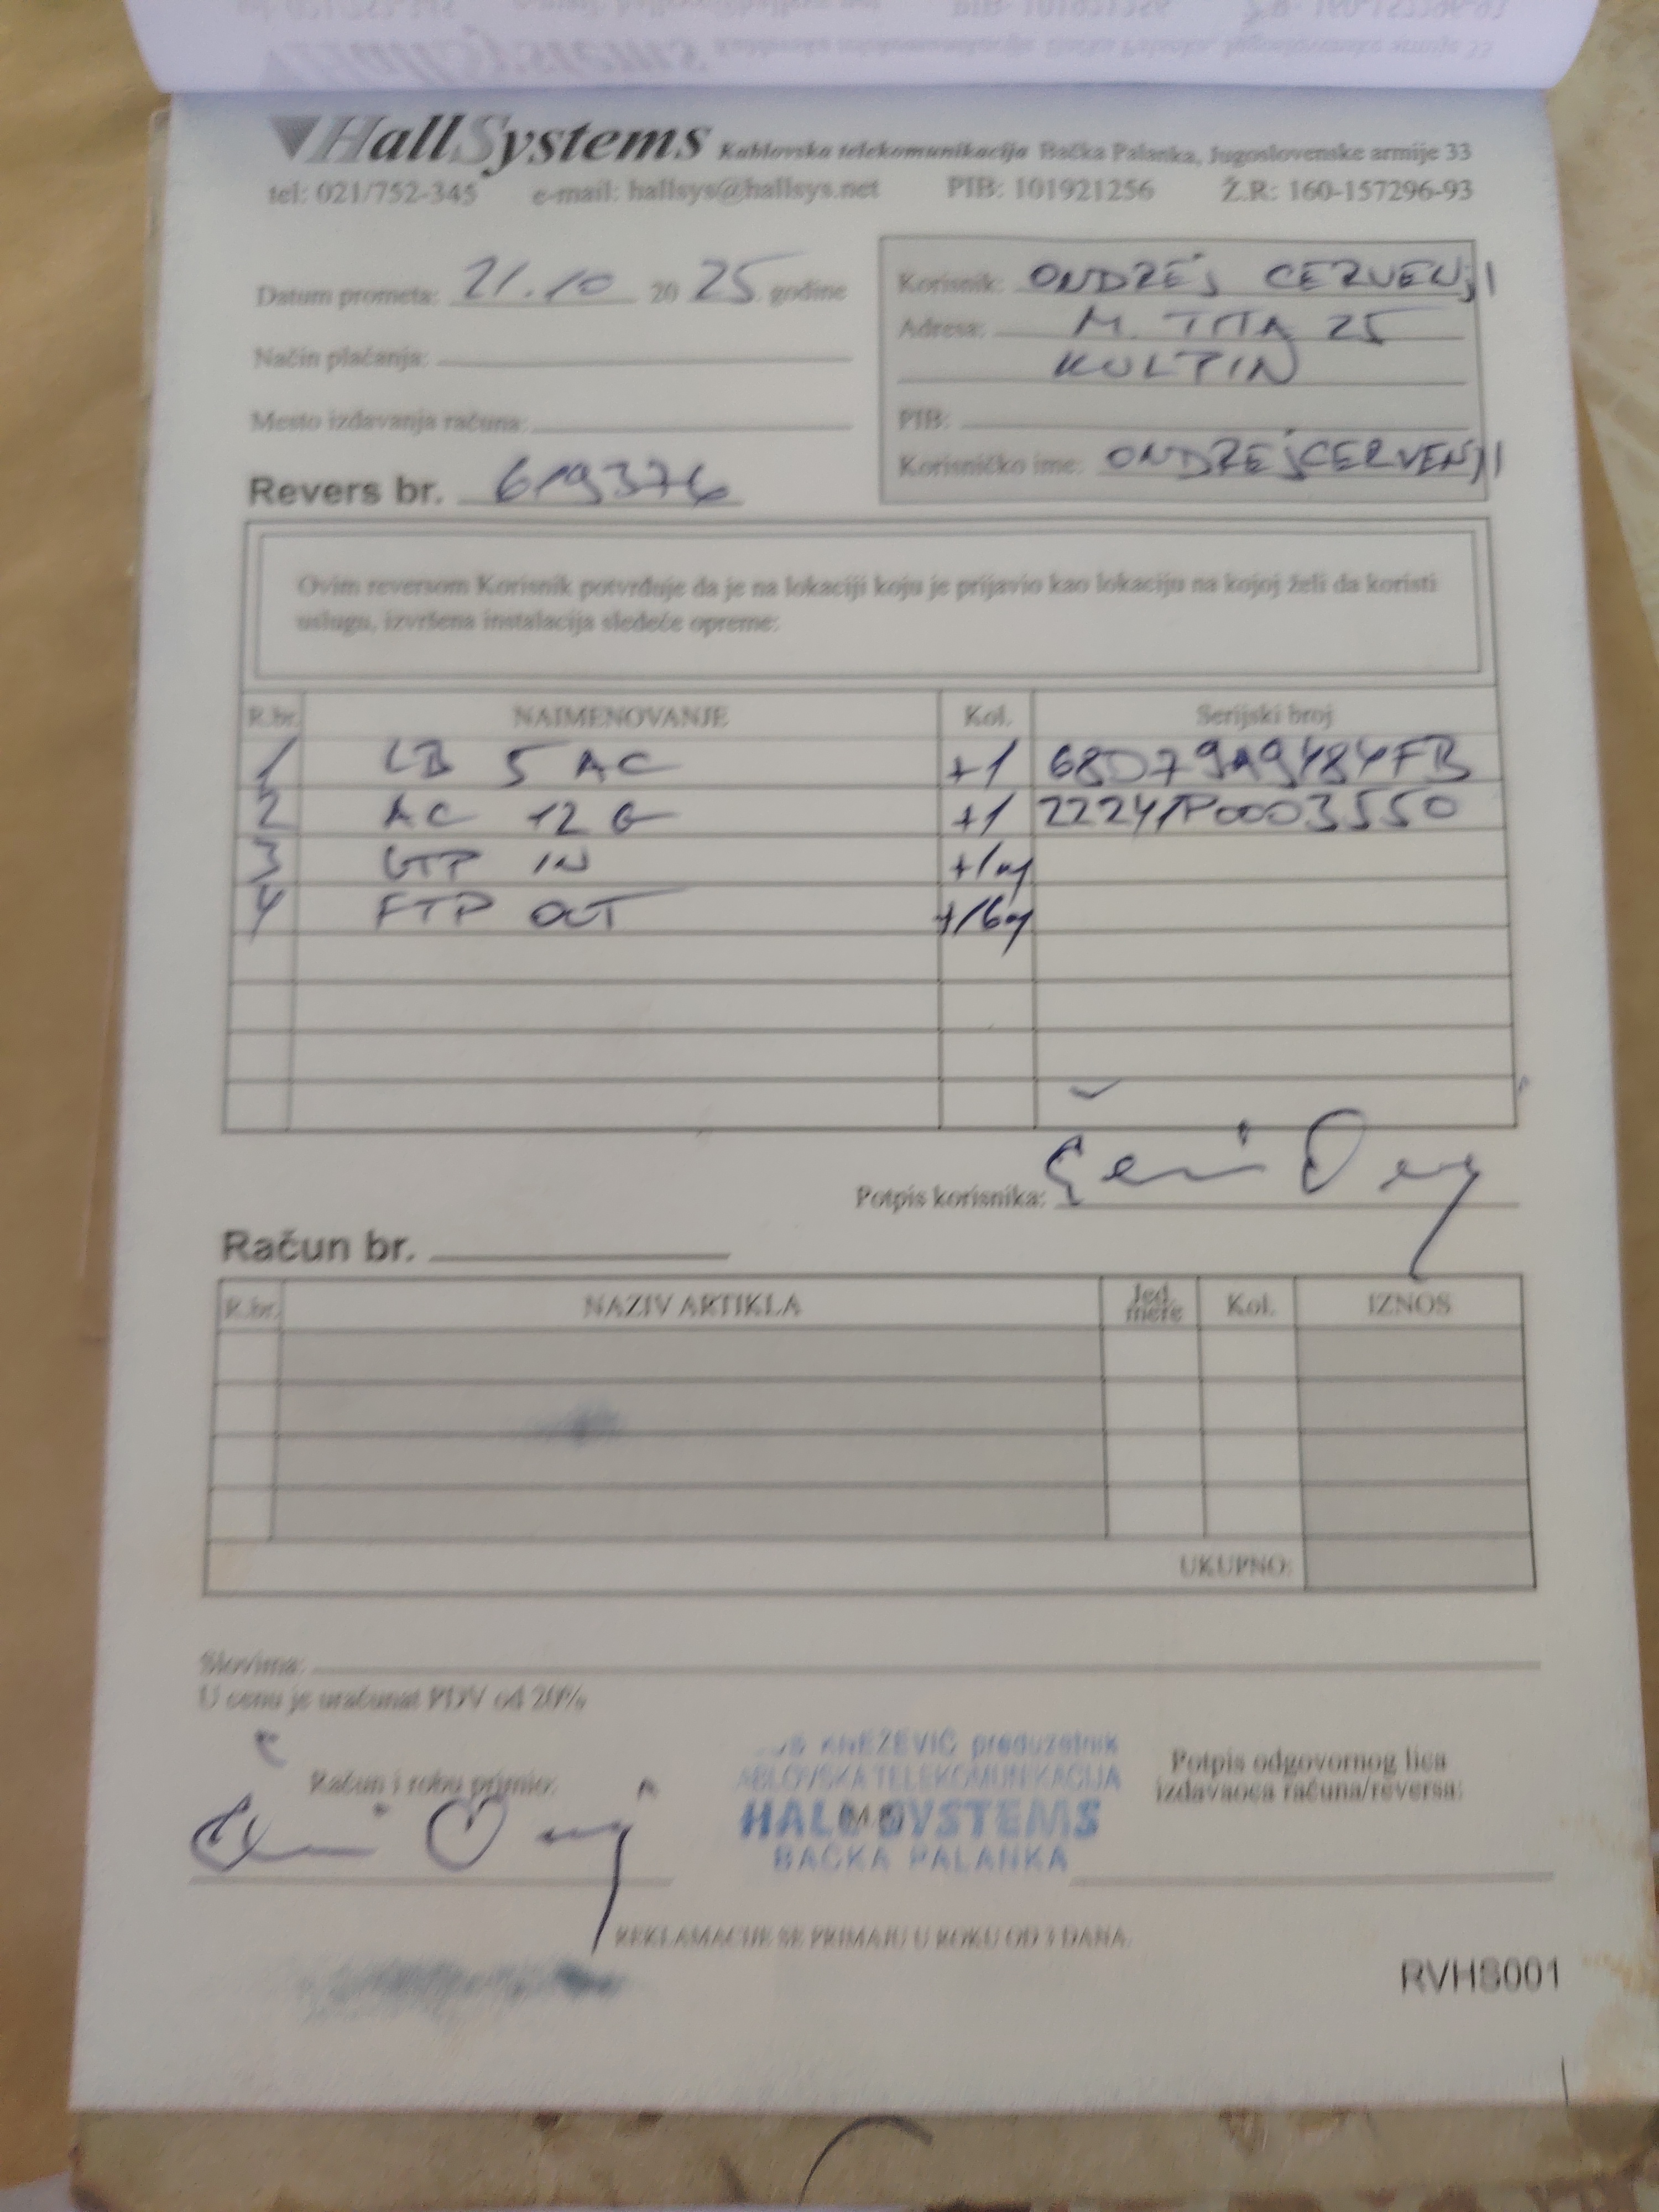 HallSystems Kablovska telekomunikacija Bačka Palanka, Jugoslovenske armije 33
tel: 021/752-345 e-mail: hallsys@hallsys.net PIB: 101921256 Ž.R: 160-157296-93
Datum prometa: 21.10 2025 godine
Način plaćanja:
Mesto izdavanja računa:
Revers br. 619376
Korisnik: ONDREJ CERVENJI
Adresa: M. TITA 25
KULPIN
PIB:
Korisničko ime: ONDREJCERVENJI
Ovim reversom Korisnik potvrđuje da je na lokaciji koju je prijavio kao lokaciju na kojoj želi da koristi
uslugu, izvršena instalacija sledeće opreme:
R.br. NAIMENOVANJE Kol. Serijski broj
1 LB 5 AC +1 68D79A9484FB
2 AC 12 G +1 22241P0003550
3 UTP IN +1m
4 FTP OUT +16m
Potpis korisnika:
Račun br.
R.br. NAZIV ARTIKLA Jed. mere Kol. IZNOS
UKUPNO:
Slovima:
U cenu je uračunat PDV od 20%
Račun i robu primio:
KNEŽEVIĆ preduzetnik
ABLOVSKA TELEKOMUNIKACIJA
BAČKA PALANKA
Potpis odgovornog lica
izdavaoca računa/reversa:
REKLAMACIJE SE PRIMAJU U ROKU OD 3 DANA.
RVHS001